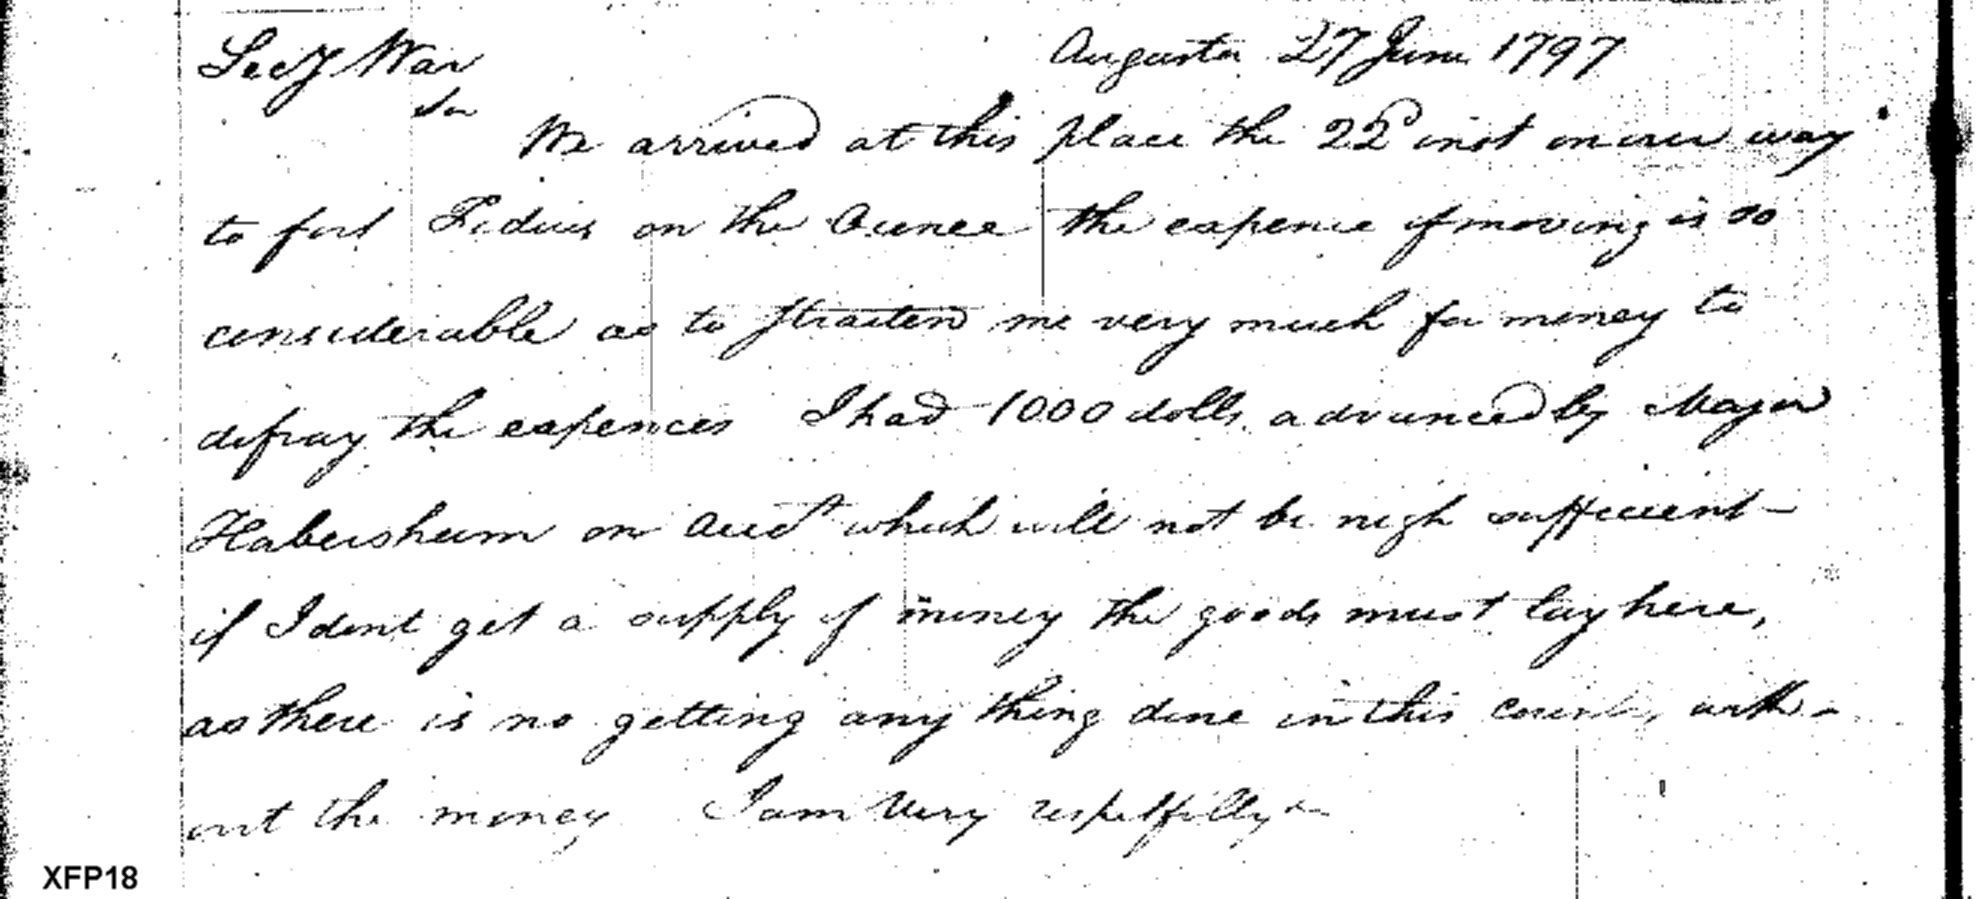 Secy War Augusta 27 June 1797
Sir
We arrived at this place the 22d inst on our way
to fort Fidius on the Oconee the expence of moving is so
considerable as to straiten me very much for money to
defray the expences I had 1000 dolls. advanced by Major
Habersham on acct which will not be nigh sufficient -
if I dont get a supply of money the goods must lay here,
as there is no getting any thing done in this with-
out the money I am very respetfully &
XFP18